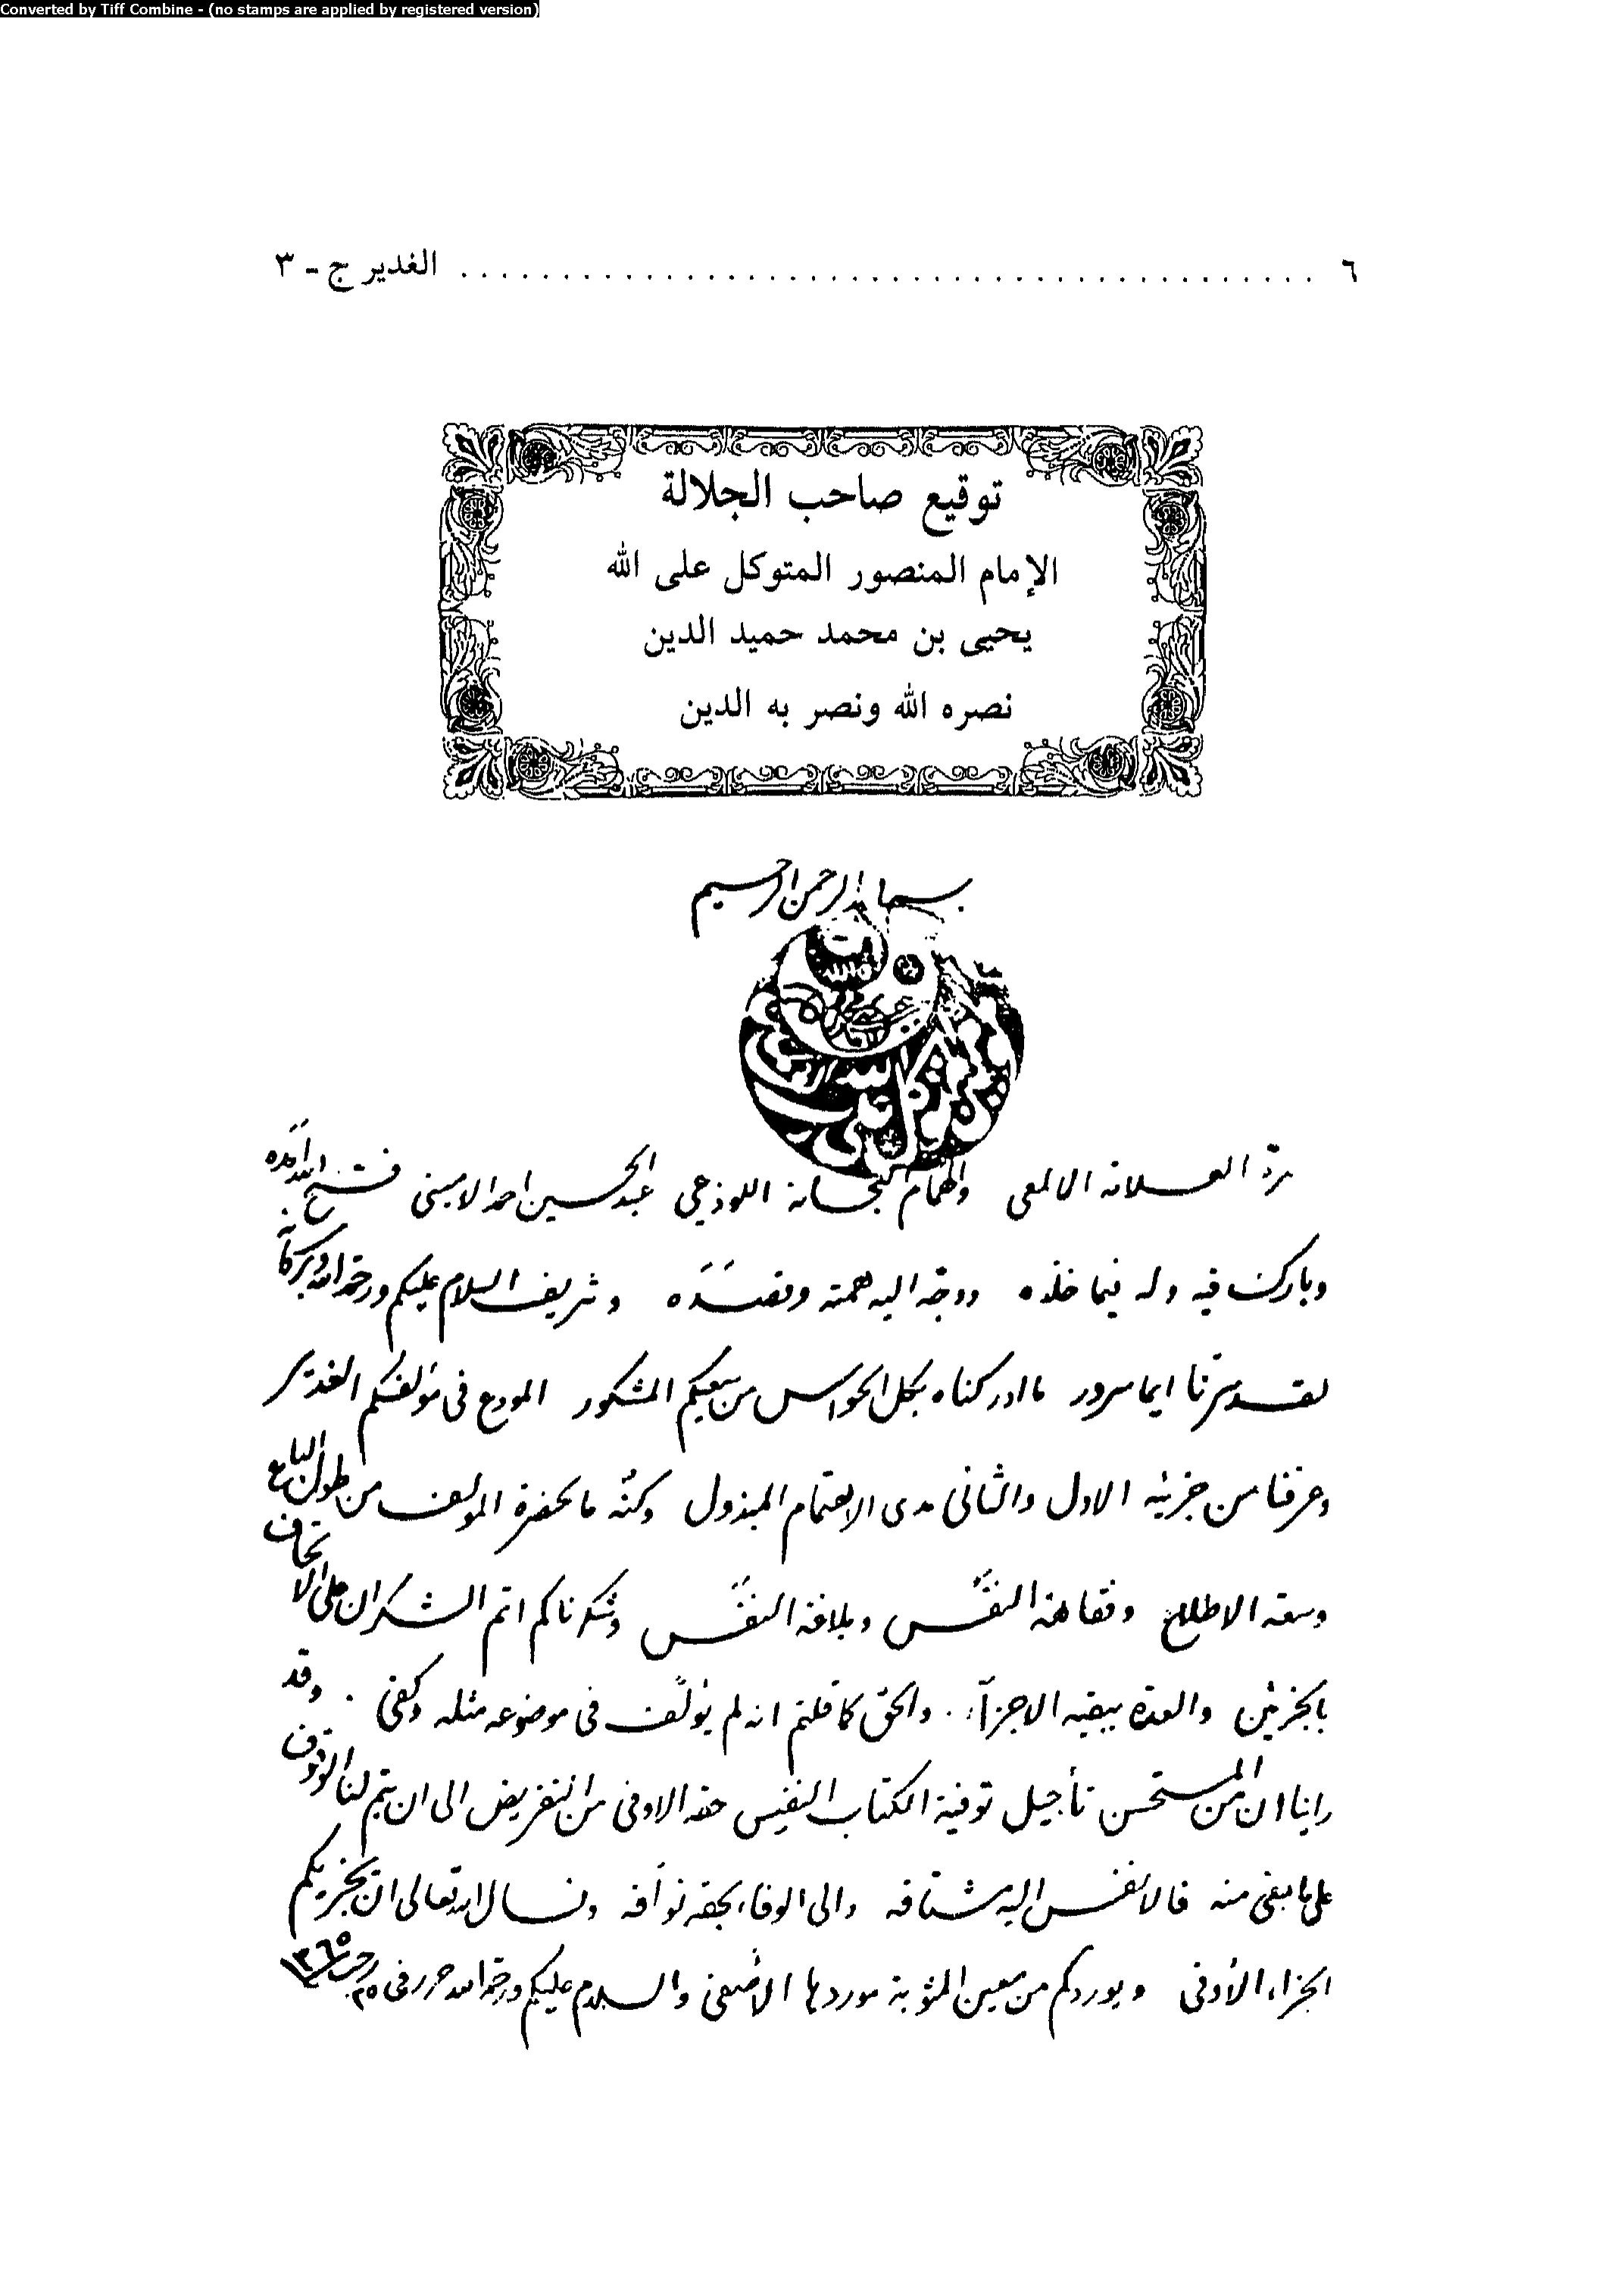 Converted by Tiff Combine - (no stamps are applied by registered version)
٦ ........................................ الغدير ج - ٣
توقيع صاحب الجلالة
الإمام المنصور المتوكل على الله
يحيى بن محمد حميد الدين
نصره الله ونصر به الدين
بسم الله الرحمن الرحيم
العلامة الالمعي والهمام اللوذعي عبد الحسين احمد الاميني فسح الله أمده
وبارك فيه وله فيما خلده ووجه اليه همته وقصده وشريف السلام عليكم ورحمة الله وبركاته
لقد سرنا ايما سرور ما ادركناه بكل الحواس من سعيكم المشكور المودع في مؤلفكم الغدير
وعرفنا من جزئيه الاول والثاني مدى الاهتمام المبذول وكنه ما لحضرة المولف من طول الباع
وسعة الاطلاع وفقاهة النفس وبلاغة النفس وشكرناكم اتم الشكران على الاتحاف
بالجزئين والعدة ببقية الاجزآء . والحق كما قلتم انه لم يؤلف في موضوعه مثله وكفى . وقد
راينا ان من المستحسن تأجيل توفية الكتاب النفيس حقه الاوفى من التقريض الى ان يتم لنا الوقوف
على ما بقي منه فالانفس اليه مشتاقه والى الوفاء بحقه تواقه ونسال الله تعالى ان يجزيكم
الجزاء الأوفى ويوردكم من معين المثوبة موردها الأصفى والسلام عليكم ورحمة الله حرر في ٢٥ رجب ١٣٦٥